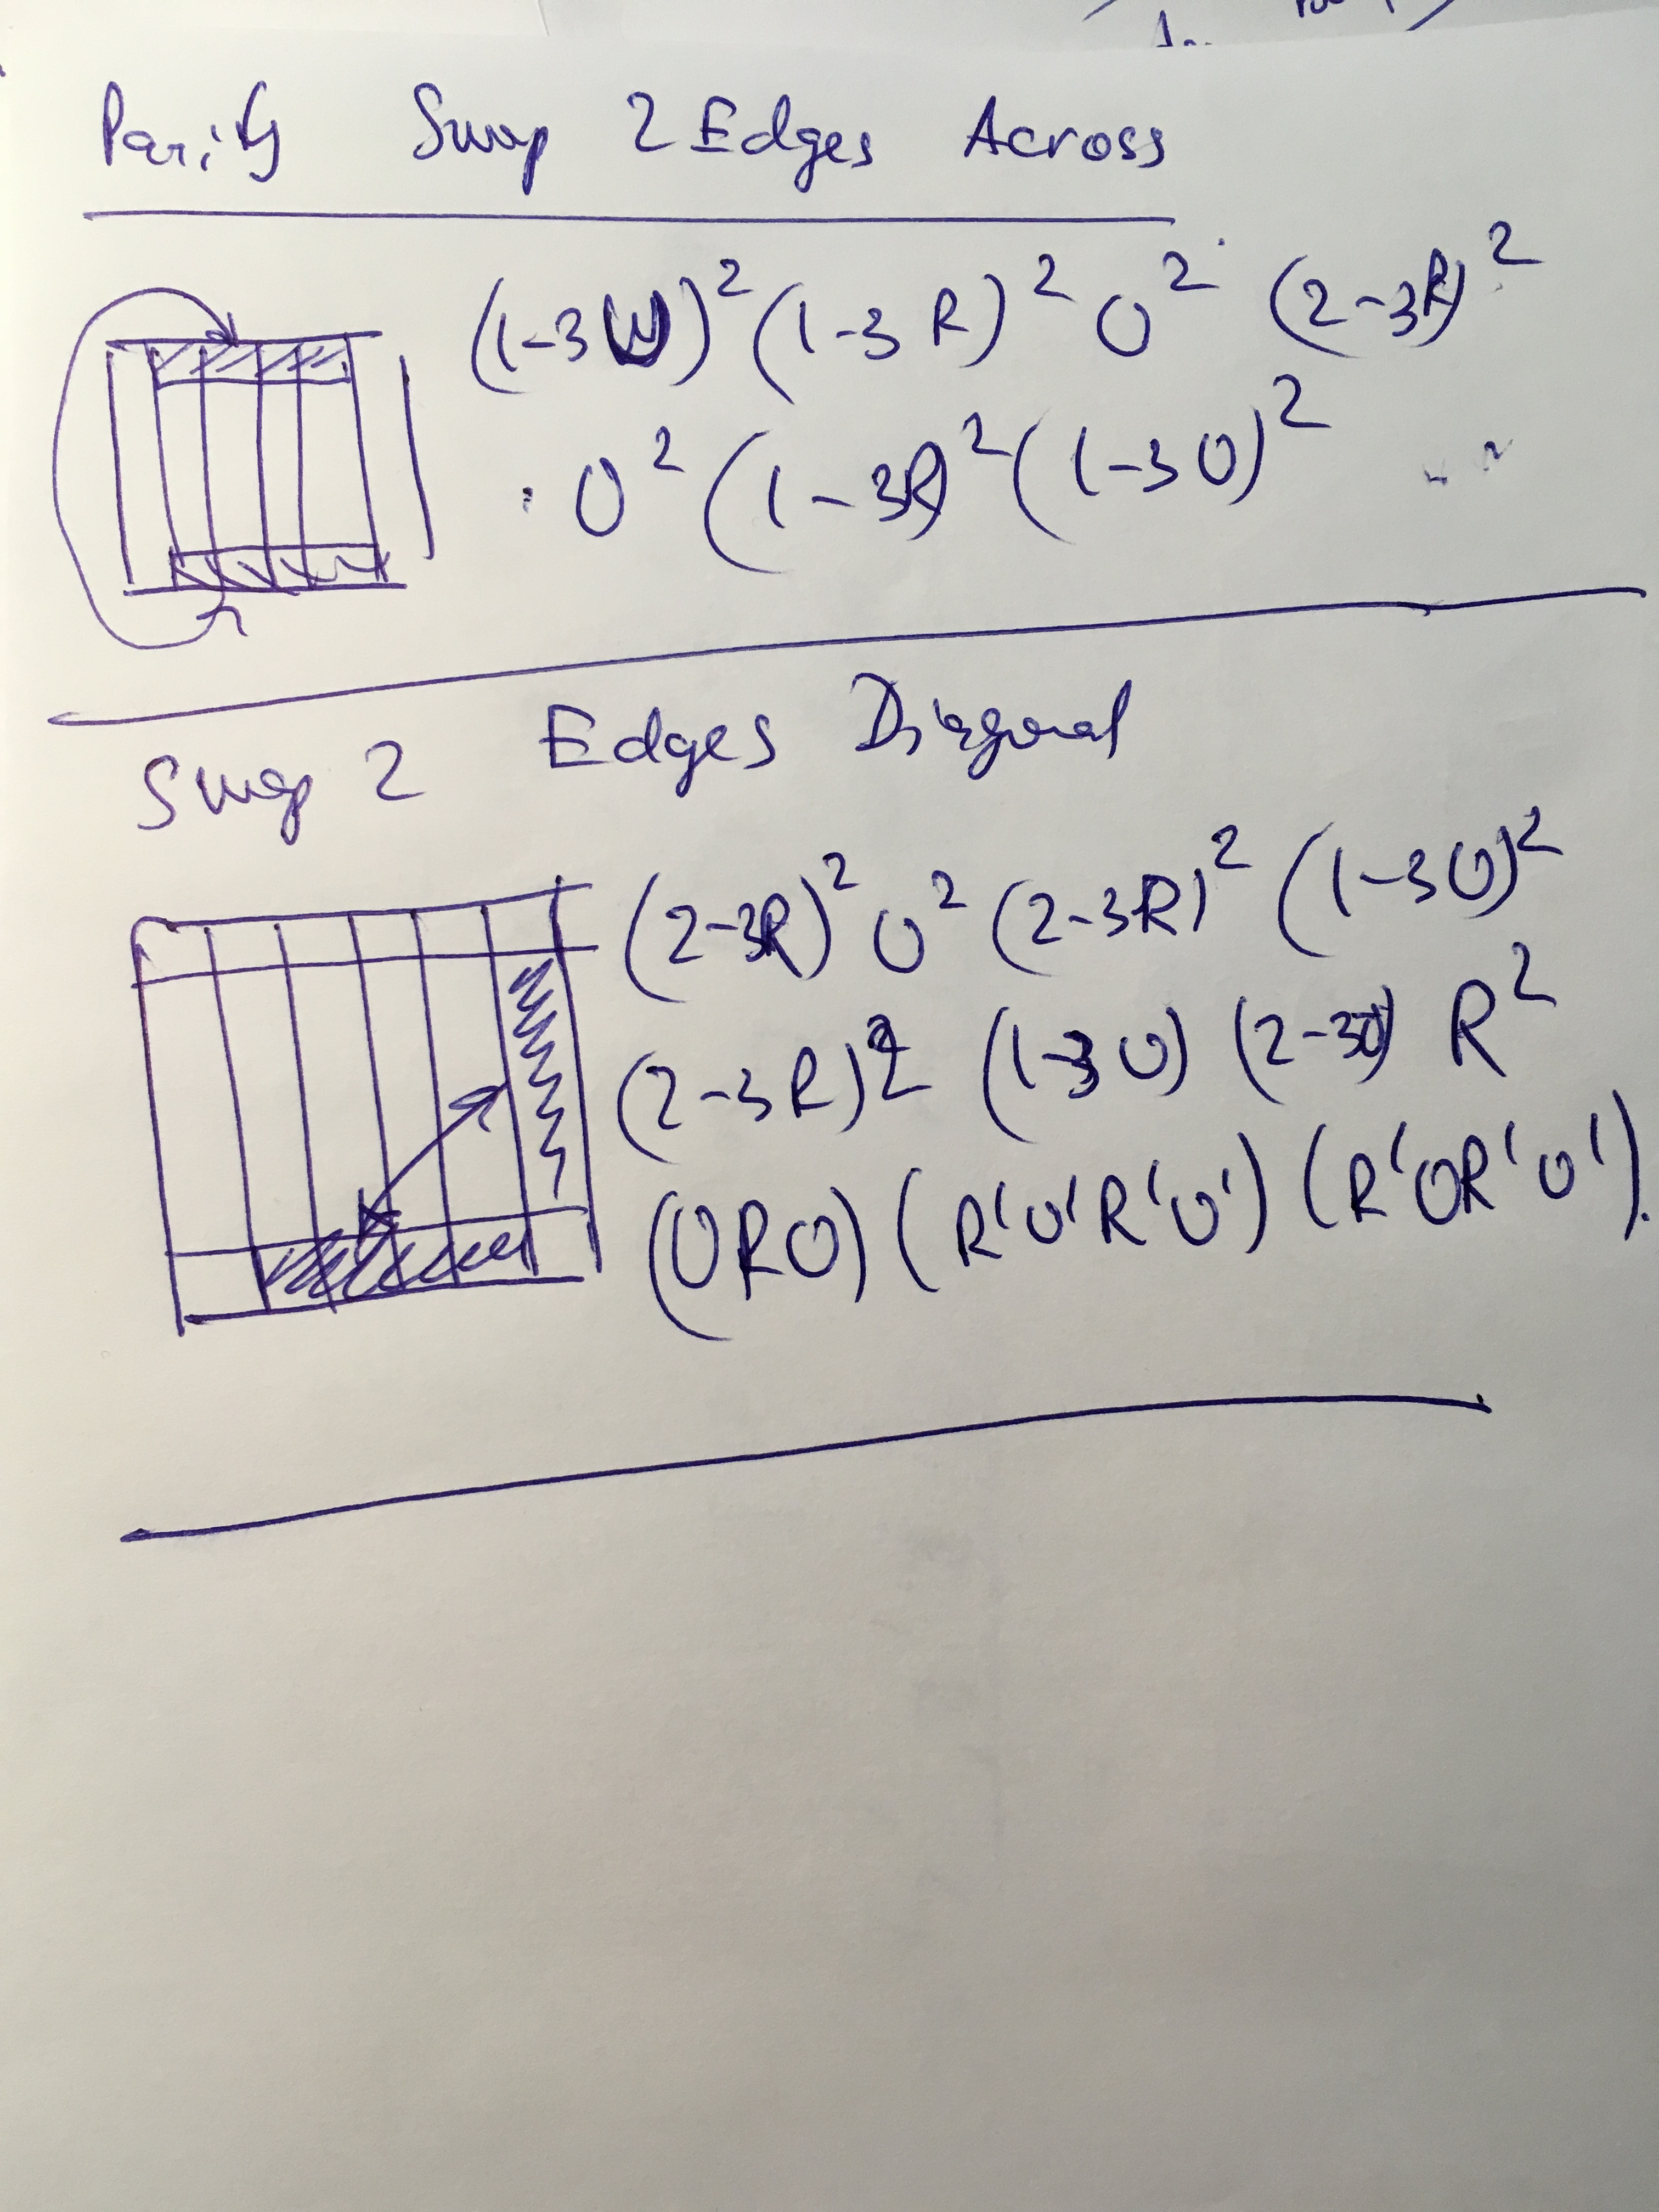 Parity Swap 2 Edges Across
(1-3U)² (1-3R)² U² (2-3R)²
U² (1-3R)² (1-3U)²
Swap 2 Edges Diagonal
(2-3R)² U² (2-3R)² (1-3U)²
(2-3R)2 (1-3U) (2-3U) R²
(URU) (R'U'R'U') (R'UR'U').